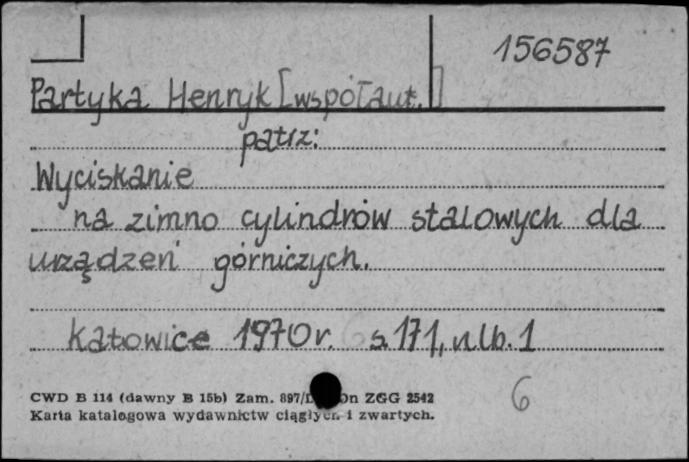 156587
Partyka Henryk [współaut.]
patrz:
Wyciskanie
na zimno cylindrów stalowych dla
urządzeń górniczych.
Katowice 1970 r. s. 171, nlb. 1
CWD B 114 (dawny B 15b) Zam. 897/ ZGG 2542
Karta katalogowa wydawnictw ciągłych i zwartych.
6